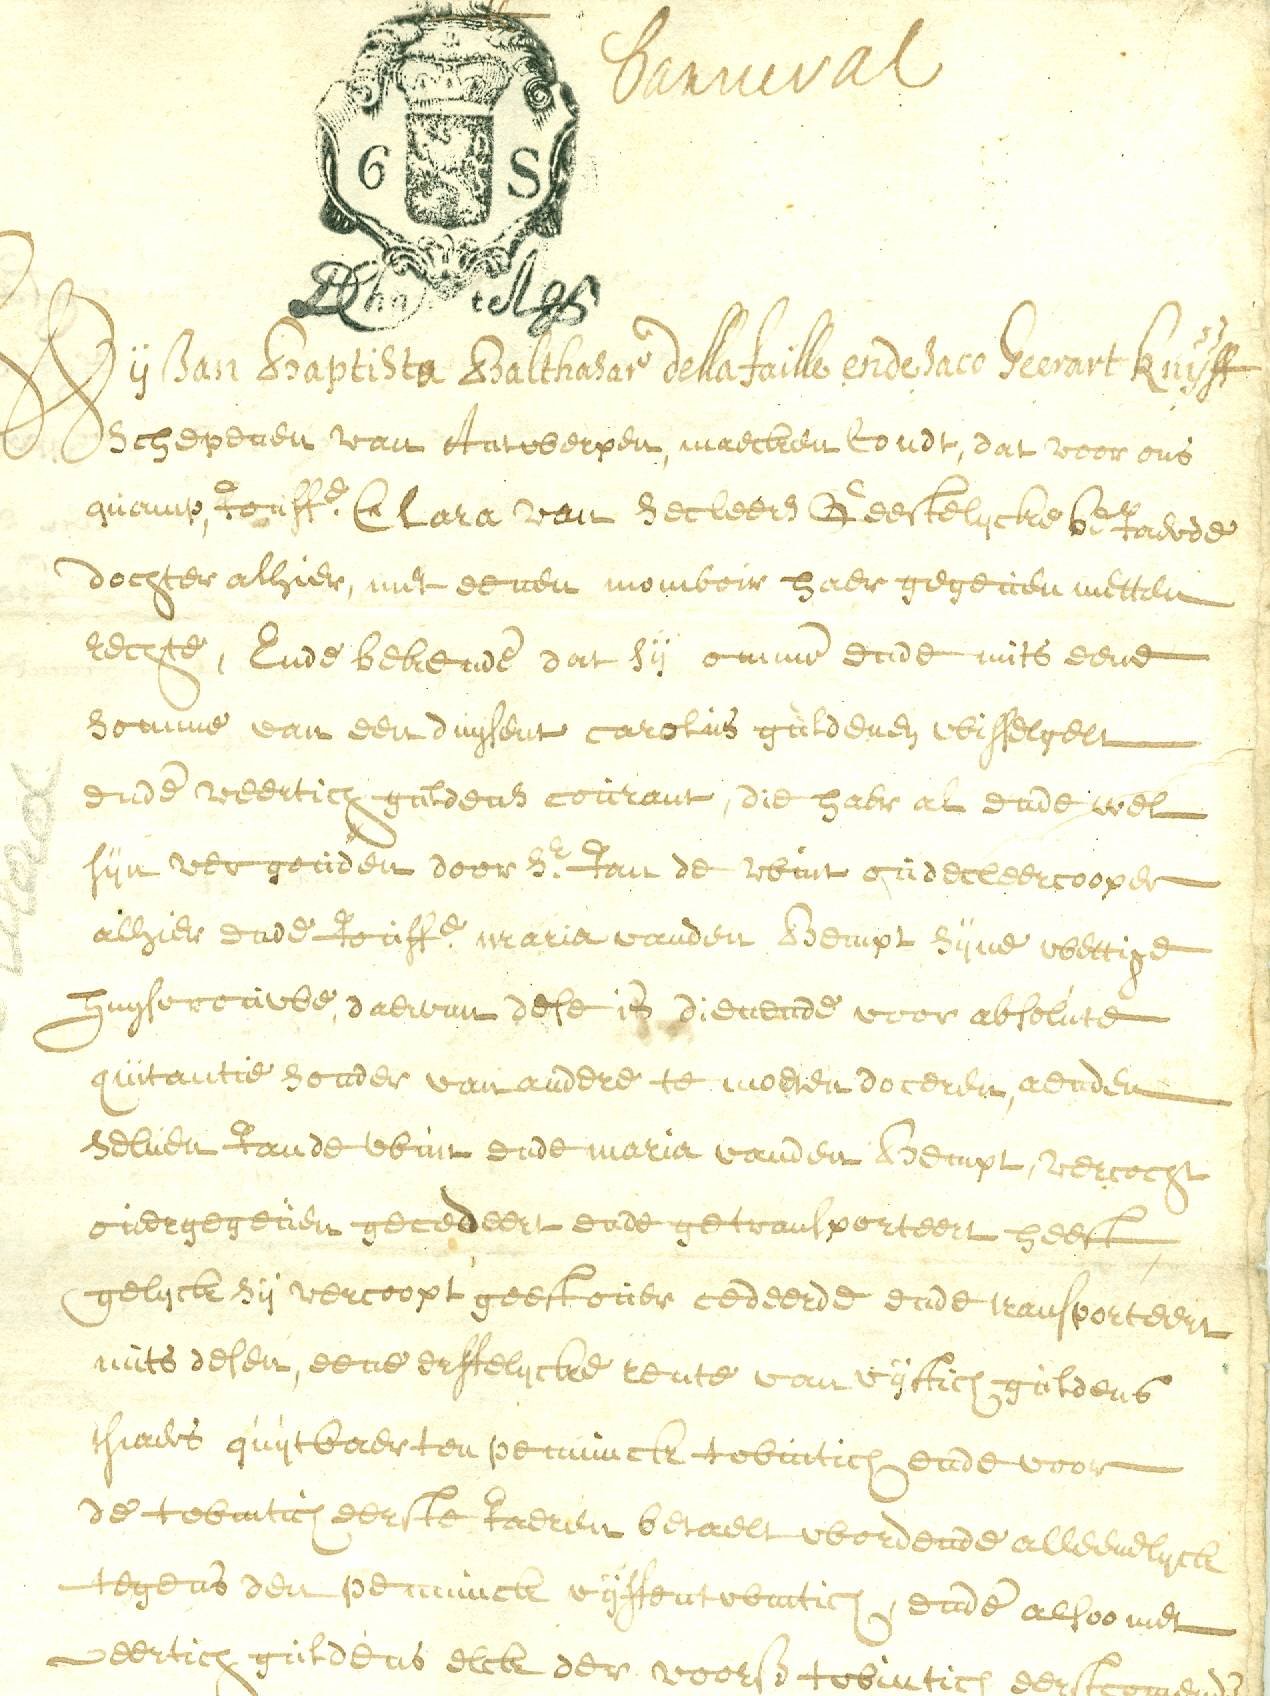 Carneval
6 S
Wij Jan Baptista Balthasar della faille ende Jaco Geerart Knijff
Schepenen van Antwerpen, maecken Condt, dat voor ons
quamp, Jouffe. Clara van Geestelycke be Jaerde
dochter alhier, met eenen momboir haer gegeven metten
rechte, Ende bekende dat sij omme ende mits eene
somme van een duysent carolus guldenen wisselgelt
ende veertich guldens courant, die haer al ende wel
sijn vergouden door Sr. Jan de Wint oudecleercooper
alhier ende Jouffe. Maria vanden Bempt sijne wettige
huysvrouwe, daervan dese is dienende voor absolute
quitantie sonder van andere te moeten doceren, aenden
selven Jan de Wint ende Maria vanden Bempt, vercocht
overgegeven gecedeert ende getransporteert heeft
gelyck sij vercoopt geeft over cedeerde ende transporteert
mits desen, eene erffelycke rente van vijftich guldens
tsiaers quijtbaer ten penninck twintich ende voor
de twintich eerste Jaeren betaelt wordende alleenelyck
tegens den penninck vijffentwintich, ende alsoo met
veertich guldens elck der voorss twintich eerstcomende